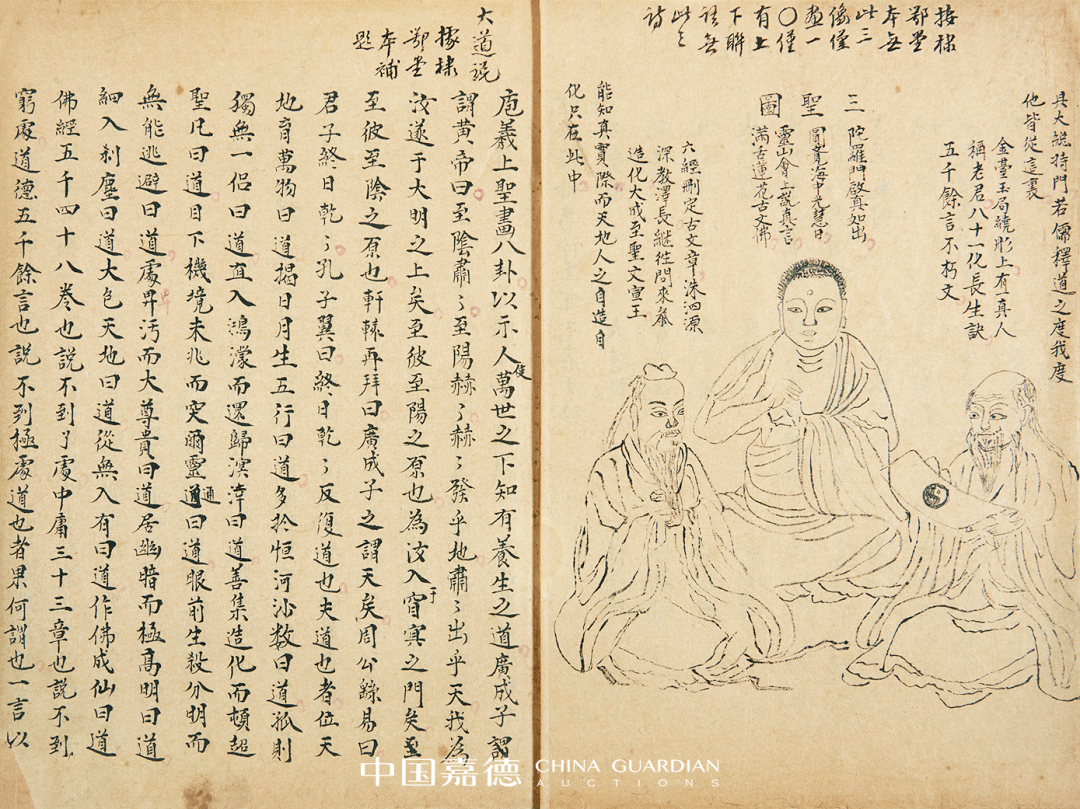 按棣
鄂堂
本無
此三
像僅
畫一
〇僅
有上
下聯
語無
此之
詩
具大總持門若儒釋道之度我度
他皆從這裏
能知真實際而天地人之自造自
化只在此中
三聖圖
陀羅門啓真如出
圓覺海中光慧日
靈山會上說真言
滿舌蓮花古文佛
金臺玉局繞彤上有真人
稱老君八十一化長生訣
五千餘言不朽文
六經刪定古文章洙泗源
深教澤長繼往開來參
造化大成至聖文宣王
大道說
按棣
鄂堂
本補
題
庖羲上聖畫八卦以示人使萬世之下知有養生之道廣成子謂
謂黃帝曰至陰肅〻至陽赫〻赫〻發乎地肅〻出乎天我為
汝遂于大明之上矣至彼至陽之原也為汝入于窅冥之門矣至
至彼至陰之原也軒轅再拜曰廣成子之謂天矣周公繇易曰
君子終日乾〻孔子翼曰終日乾〻反復道也夫道也者位天
地育萬物曰道揭日月生五行曰道多於恒河沙數曰道孤則
獨無一侶曰道直入鴻濛而還歸溟涬曰道善集造化而頓超
聖凡曰道目下機境未兆而突爾靈通曰道眼前生殺分明而
無能逃避曰道處卑污而大尊貴曰道居幽暗而極高明曰道
細入剎塵曰道大包天地曰道從無入有曰道作佛成仙曰道
佛經五千四十八卷也說不到了處中庸三十三章也說不到
窮處道德五千餘言也說不到極處道也者果何謂也一言以
中国嘉德 CHINA GUARDIAN
AUCTIONS